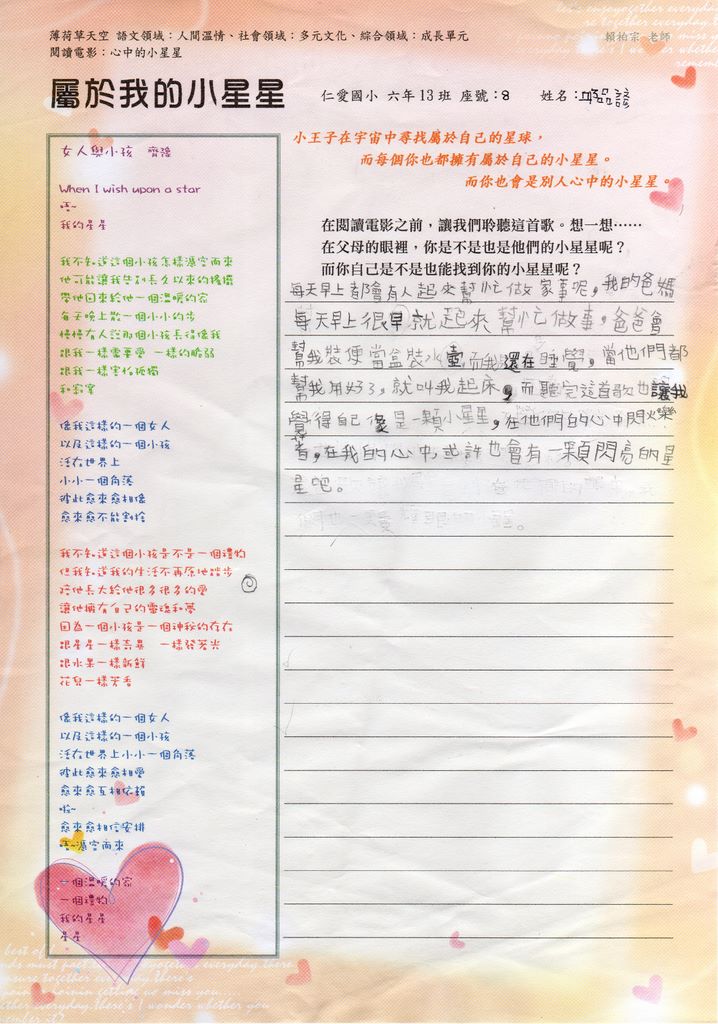 薄荷草天空 語文領域：人間溫情、社會領域：多元文化、綜合領域：成長單元
賴柏宗 老師
閱讀電影：心中的小星星
屬於我的小星星
仁愛國小 六年13班 座號：8 姓名：
女人與小孩 齊豫
When I wish upon a star
唔~
我的星星
我不知道這個小孩怎樣憑空而來
他可能讓我告別長久以來的搖擺
帶他回來給他一個溫暖的家
每天晚上散一個小小的步
慢慢有人說那個小孩長得像我
跟我一樣需要愛 一樣的脆弱
跟我一樣害怕孤獨
和寂寞
像我這樣的一個女人
以及這樣的一個小孩
活在世界上
小小一個角落
彼此愈來愈相像
愈來愈不能割捨
我不知道這個小孩是不是一個禮物
但我知道我的生活不再原地踏步
陪他長大給他很多很多的愛
讓他擁有自己的靈魂和夢
因為一個小孩是一個神秘的存在
跟星星一樣奇異 一樣發著光
跟水果一樣新鮮
花兒一樣芳香
像我這樣的一個女人
以及這樣的一個小孩
活在世界上小小一個角落
彼此愈來愈相愛
愈來愈互相依賴
啦~
愈來愈相信安排
唔~憑空而來
一個溫暖的家
一個禮物
我的星星
星星
小王子在宇宙中尋找屬於自己的星球，
而每個你也都擁有屬於自己的小星星。
而你也會是別人心中的小星星。
在閱讀電影之前，讓我們聆聽這首歌。想一想……
在父母的眼裡，你是不是也是他們的小星星呢？
而你自己是不是也能找到你的小星星呢？
每天早上都會有人起來幫忙做家事呢，我的爸媽
每天早上很早就起來幫忙做事，爸爸會
幫我裝便當盒裝水壺而我還在睡覺，當他們都
幫我用好了，就叫我起床，而聽完這首歌也讓我
覺得自己像是一顆小星星，在他們的心中閃爍
著，在我的心中，或許也會有一顆閃亮的星
星吧。